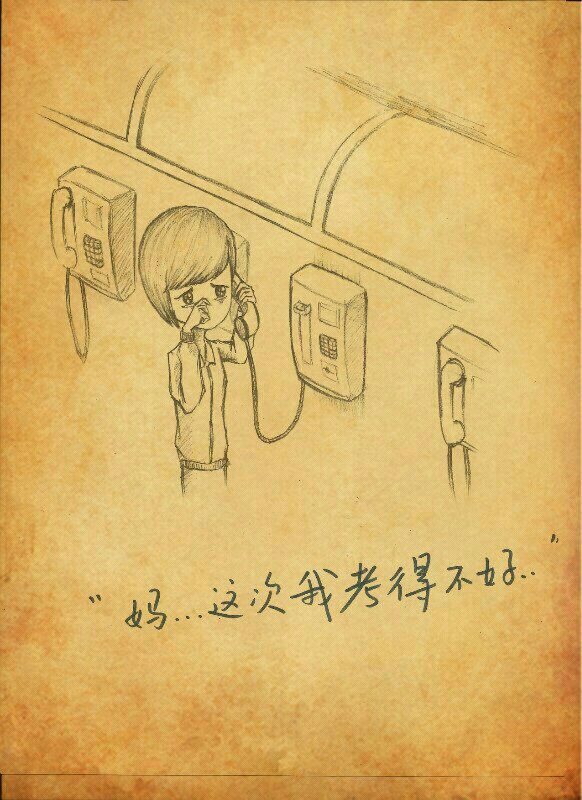 "妈...这次我考得不好.."